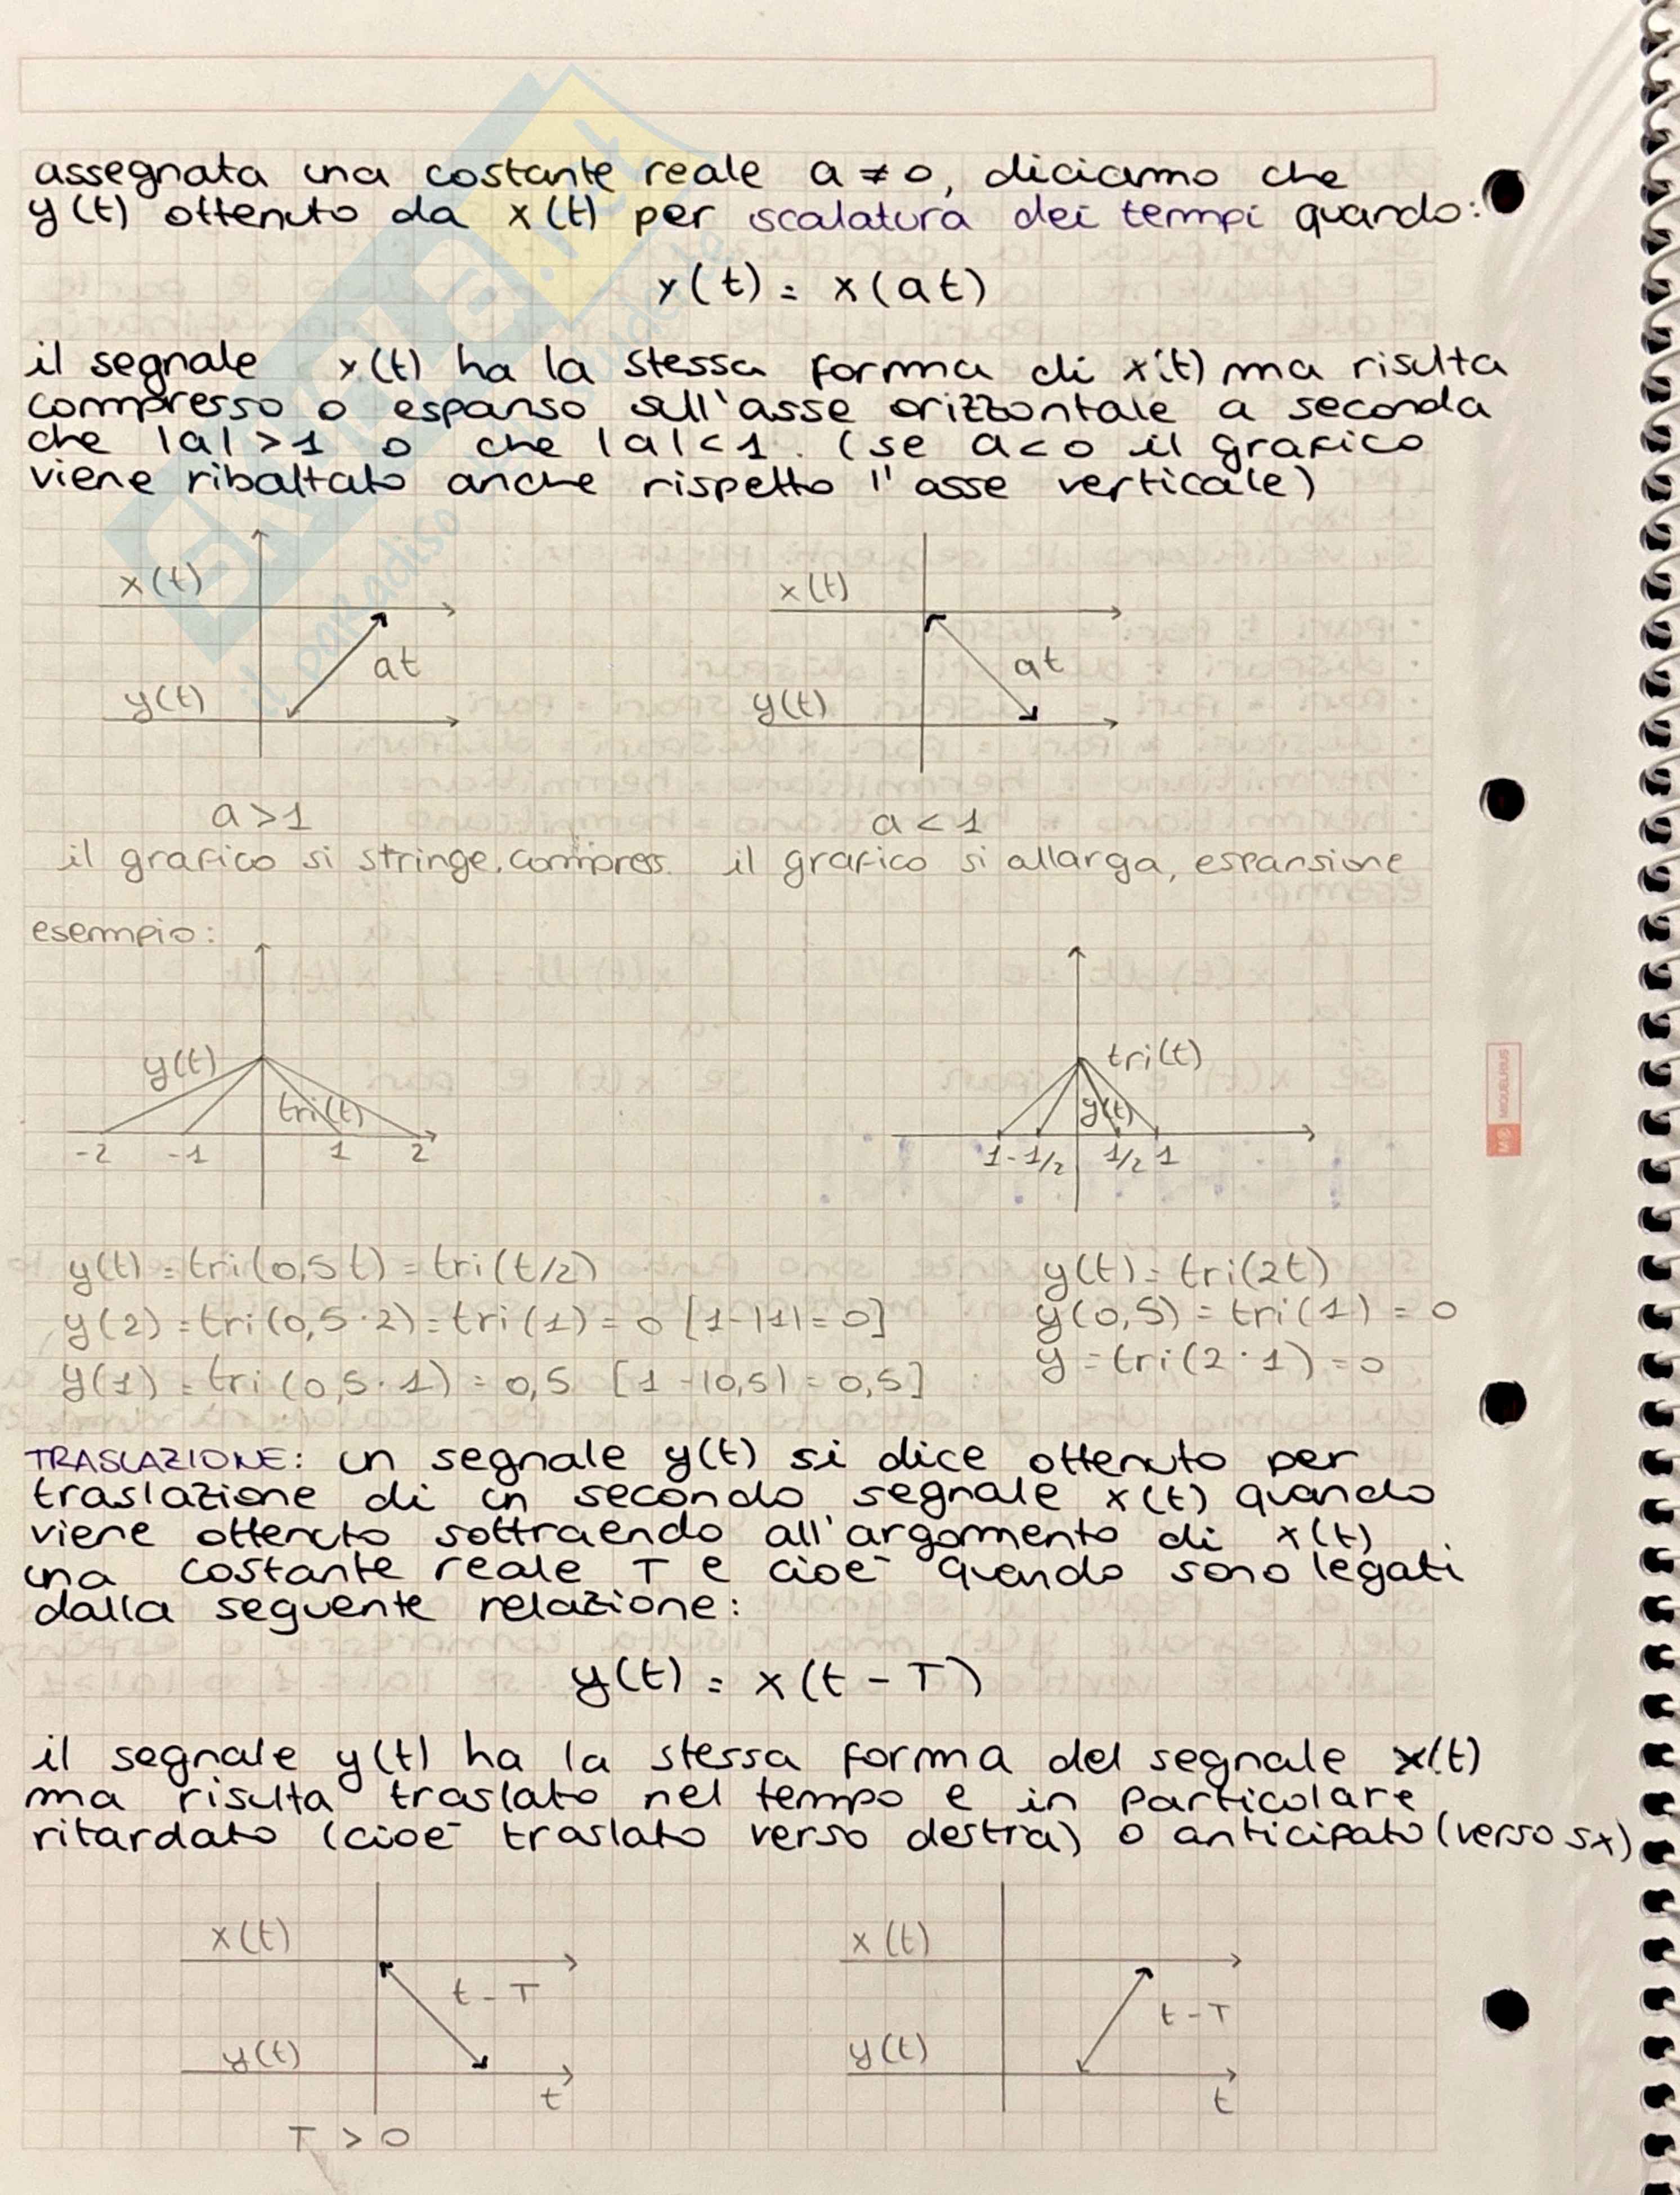 assegnata una costante reale a ≠ 0, diciamo che
y(t) ottenuto da x(t) per scalatura dei tempi quando:
y(t) = x(at)
il segnale y(t) ha la stessa forma di x(t) ma risulta
compresso o espanso sull'asse orizzontale a seconda
che |a|>1 o che |a|<1. (se a<0 il grafico
viene ribaltato anche rispetto l'asse verticale)
x(t) x(t)
at at
y(t) y(t)
a>1 a<1
il grafico si stringe, compress. il grafico si allarga, espansione
esempio:
y(t) tri(t)
tri(t) y(t)
-2 -1 1 2 1 -1/2 1/2 1
y(t) = tri(0,5t) = tri(t/2) y(t) = tri(2t)
y(2) = tri(0,5·2) = tri(1) = 0 [1-|1|=0] y(0,5) = tri(1) = 0
y(1) = tri(0,5·1) = 0,5 [1-|0,5|=0,5] y = tri(2·1) = 0
TRASLAZIONE: un segnale y(t) si dice ottenuto per
traslazione di un secondo segnale x(t) quando
viene ottenuto sottraendo all'argomento di x(t)
una costante reale T e cioè quando sono legati
dalla seguente relazione:
y(t) = x(t-T)
il segnale y(t) ha la stessa forma del segnale x(t)
ma risulta traslato nel tempo e in particolare
ritardato (cioè traslato verso destra) o anticipato (verso sx)
x(t) x(t)
t-T t-T
y(t) y(t)
t t
T > 0
MIQUELRIUS